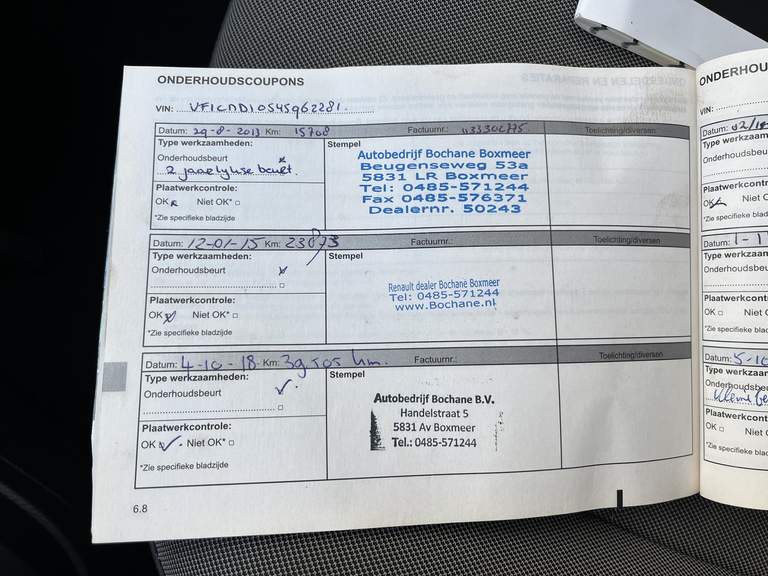 ONDERHOUDSCOUPONS
VIN: VF1CND10545962281.
Datum: 29-8-2013 Km: 15708 Factuurnr.: Toelichting/diversen
Type werkzaamheden:
Onderhoudsbeurt
2 jaarlijkse beurt.
Plaatwerkcontrole:
OK Niet OK* □
*Zie specifieke bladzijde
Stempel
Autobedrijf Bochane Boxmeer
Beugenseweg 53a
5831 LR Boxmeer
Tel: 0485-571244
Fax 0485-576371
Dealernr. 50243
Datum: 12-01-15 Km: 23873 Factuurnr.: Toelichting/diversen
Type werkzaamheden:
Onderhoudsbeurt
Plaatwerkcontrole:
OK Niet OK* □
*Zie specifieke bladzijde
Stempel
Renault dealer Bochane Boxmeer
Tel: 0485-571244
www.Bochane.nl
Datum: 4-10-18 Km: 39505 km. Factuurnr.: Toelichting/diversen
Type werkzaamheden:
Onderhoudsbeurt
Plaatwerkcontrole:
OK Niet OK* □
*Zie specifieke bladzijde
Stempel
Autobedrijf Bochane B.V.
Handelstraat 5
5831 Av Boxmeer
Tel.: 0485-571244
6.8
ONDERHOU
VIN:
Datum: 02/
Type werkzaam
Onderhoudsbeurt
Plaatwerkcontr
OK Niet
*Zie specifieke bla
Datum: 1-1
Type werkzaam
Onderhoudsbeurt
Plaatwerkcont
OK □ Niet
*Zie specifieke bla
Datum: 5-10
Type werkzaam
Onderhoudsbe
Kleine be
Plaatwerkcontr
OK □ Niet
*Zie specifieke bl